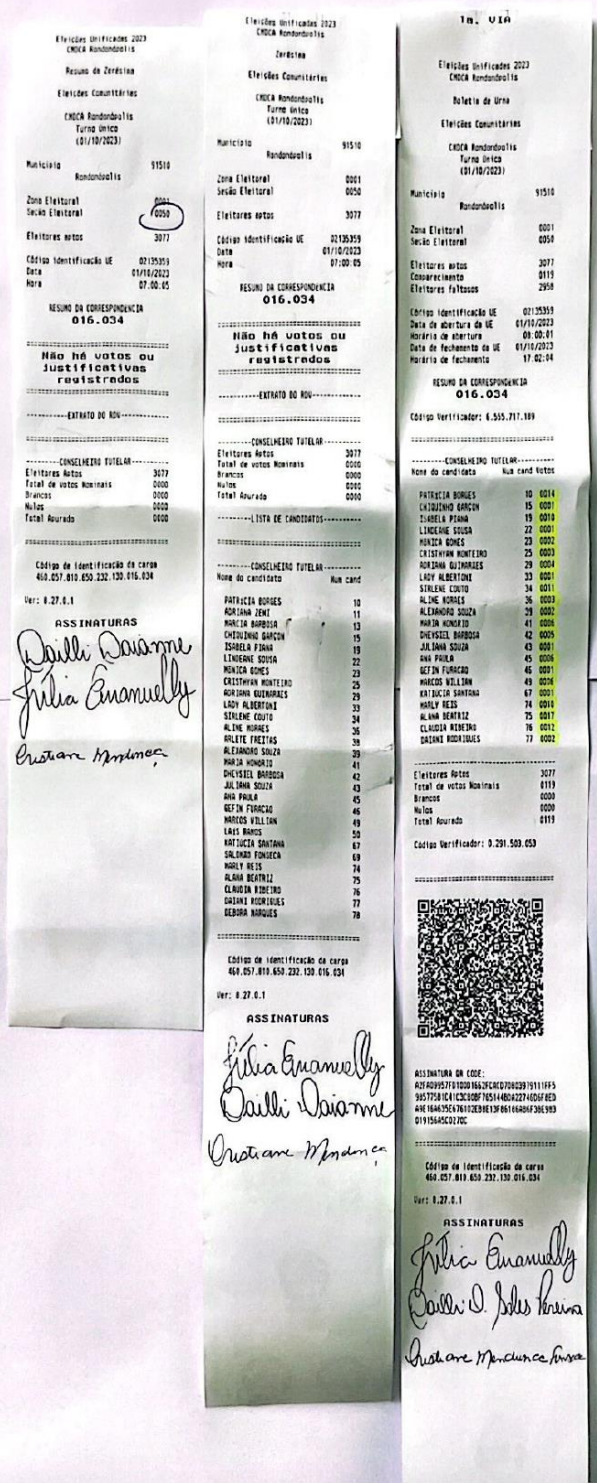 Eleições Unificadas 2023
CMDCA Rondonópolis
Resumo da Zerésima
Eleições Comunitárias
CMDCA Rondonópolis
Turno Único
(01/10/2023)
Município 91510
Rondonópolis
Zona Eleitoral 0001
Seção Eleitoral 0050
Eleitores aptos 3077
Código identificação UE 02135359
Data 01/10/2023
Hora 07:00:05
RESUMO DA CORRESPONDÊNCIA
016.034
Não há votos ou
justificativas
registrados
EXTRATO DO RDV
CONSELHEIRO TUTELAR
Eleitores Aptos 3077
Total de votos Nominais 0000
Brancos 0000
Nulos 0000
Total Apurado 0000
Código de identificação da carga
460.057.810.650.232.130.016.034
Ver: 8.27.0.1
ASSINATURAS
Dailli Daianne
Júlia Emanuelly
Cristiane Mendonça
Eleições Unificadas 2023
CMDCA Rondonópolis
Zerésima
Eleições Comunitárias
CMDCA Rondonópolis
Turno Único
(01/10/2023)
Município 91510
Rondonópolis
Zona Eleitoral 0001
Seção Eleitoral 0050
Eleitores aptos 3077
Código identificação UE 02135359
Data 01/10/2023
Hora 07:00:05
RESUMO DA CORRESPONDÊNCIA
016.034
Não há votos ou
justificativas
registrados
EXTRATO DO RDV
CONSELHEIRO TUTELAR
Eleitores Aptos 3077
Total de votos Nominais 0000
Brancos 0000
Nulos 0000
Total Apurado 0000
LISTA DE CANDIDATOS
CONSELHEIRO TUTELAR
Nome do candidato Num cand
PATRÍCIA BORGES 10
ADRIANA ZENI 11
MARCIA BARBOSA 13
CHIQUINHO GARÇON 15
ISABELA PIANA 19
LINDEANE SOUSA 22
MONICA GOMES 23
CRISTHYAN MONTEIRO 25
ADRIANA GUIMARAES 29
LADY ALBERTONI 33
SIRLENE COUTO 34
ALINE MORAES 36
ARLETE FREITAS 38
ALEXANDRO SOUZA 39
MARIA HONORIO 41
DHEYSIEL BARBOSA 42
JULIANA SOUZA 43
ANA PAULA 45
GEFIN FURACAO 46
MARCOS WILLIAN 49
LAIS RAMOS 50
KATIUCIA SANTANA 67
SALOMAO FONSECA 69
MARLY REIS 74
ALANA BEATRIZ 75
CLAUDIA RIBEIRO 76
DAIANI RODRIGUES 77
DEBORA MARQUES 78
Código de identificação da carga
460.057.810.650.232.130.016.034
Ver: 8.27.0.1
ASSINATURAS
Júlia Emanuelly
Dailli Daianne
Cristiane Mendonça
1a. VIA
Eleições Unificadas 2023
CMDCA Rondonópolis
Boletim de Urna
Eleições Comunitárias
CMDCA Rondonópolis
Turno Único
(01/10/2023)
Município 91510
Rondonópolis
Zona Eleitoral 0001
Seção Eleitoral 0050
Eleitores aptos 3077
Comparecimento 0119
Eleitores faltosos 2958
Código identificação UE 02135359
Data de abertura da UE 01/10/2023
Horário de abertura 08:00:01
Data de fechamento da UE 01/10/2023
Horário de fechamento 17:02:04
RESUMO DA CORRESPONDÊNCIA
016.034
Código Verificador: 6.555.717.189
CONSELHEIRO TUTELAR
Nome do candidato Num cand Votos
PATRÍCIA BORGES 10 0014
CHIQUINHO GARÇON 15 0001
ISABELA PIANA 19 0010
LINDEANE SOUSA 22 0001
MONICA GOMES 23 0002
CRISTHYAN MONTEIRO 25 0003
ADRIANA GUIMARAES 29 0004
LADY ALBERTONI 33 0001
SIRLENE COUTO 34 0011
ALINE MORAES 36 0003
ALEXANDRO SOUZA 39 0002
MARIA HONORIO 41 0006
DHEYSIEL BARBOSA 42 0005
JULIANA SOUZA 43 0001
ANA PAULA 45 0006
GEFIN FURACAO 46 0001
MARCOS WILLIAN 49 0006
KATIUCIA SANTANA 67 0001
MARLY REIS 74 0010
ALANA BEATRIZ 75 0017
CLAUDIA RIBEIRO 76 0012
DAIANI RODRIGUES 77 0002
Eleitores Aptos 3077
Total de votos Nominais 0119
Brancos 0000
Nulos 0000
Total Apurado 0119
Código Verificador: 0.291.503.053
ASSINATURA QR CODE:
Código de identificação da carga
460.057.810.650.232.130.016.034
Ver: 8.27.0.1
ASSINATURAS
Júlia Emanuelly
Dailli D. Sales Pereira
Cristiane Mendonça